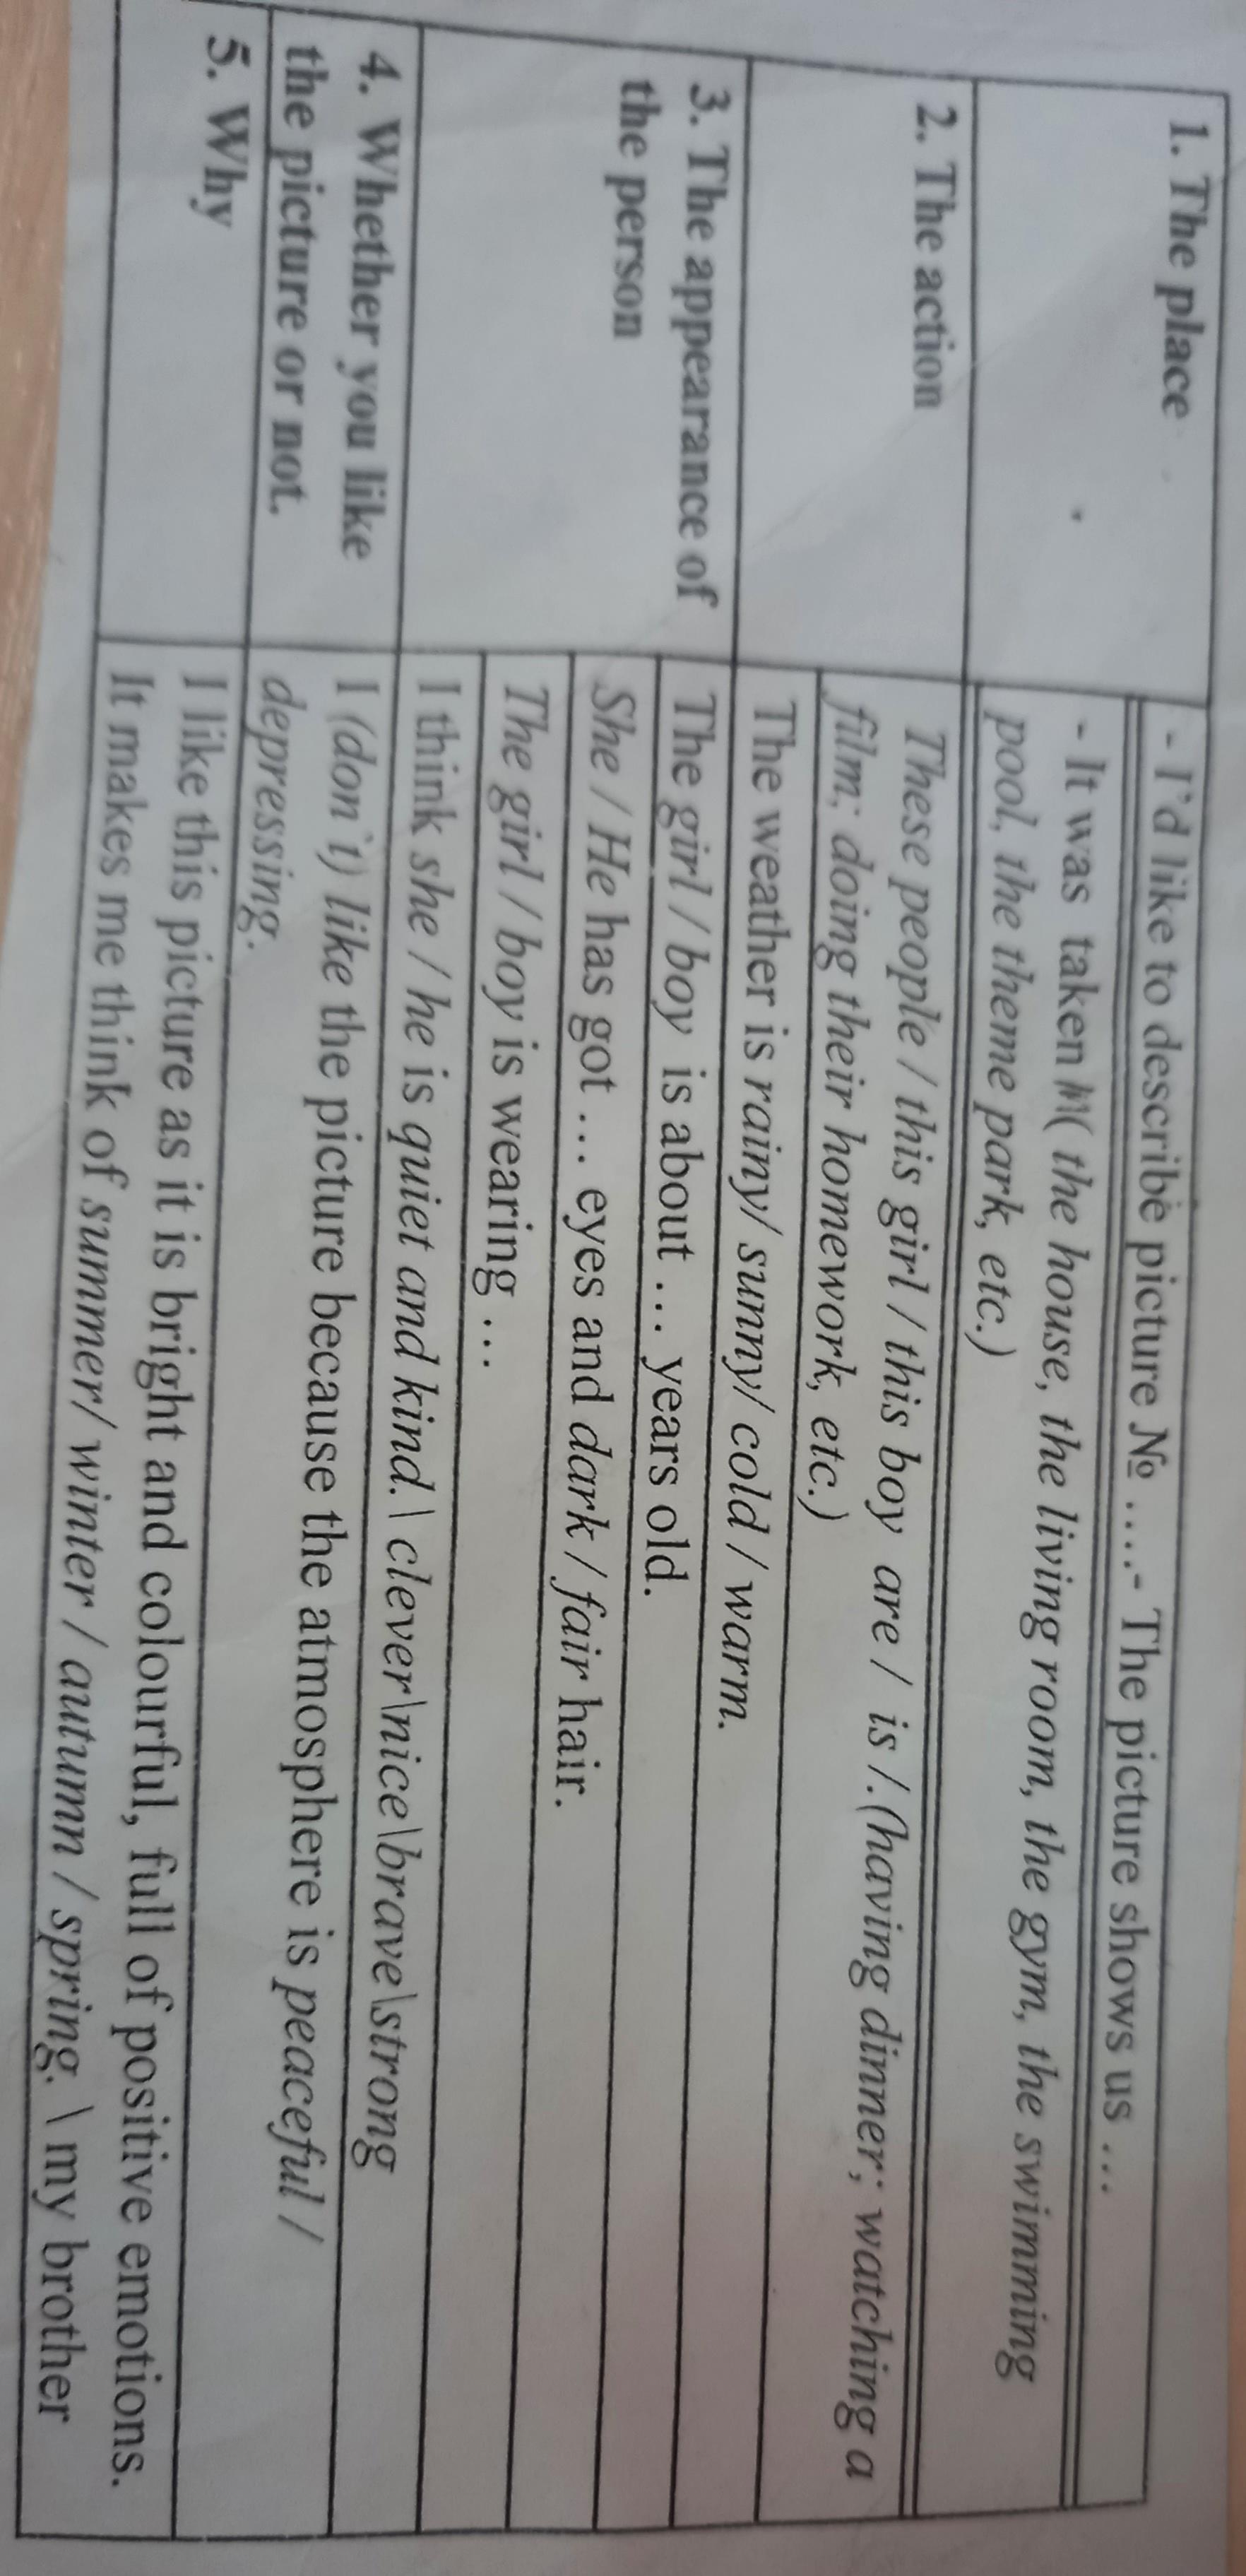 1. The place
- I'd like to describe picture № ….- The picture shows us …
- It was taken in( the house, the living room, the gym, the swimming
pool, the theme park, etc.)
2. The action
These people / this girl / this boy are / is /.(having dinner; watching a
film; doing their homework, etc.)
The weather is rainy/ sunny/ cold / warm.
3. The appearance of
the person
The girl / boy is about … years old.
She / He has got … eyes and dark / fair hair.
The girl / boy is wearing …
I think she / he is quiet and kind.\ clever\nice\brave\strong
4. Whether you like
the picture or not.
I (don`t) like the picture because the atmosphere is peaceful /
depressing.
5. Why
I like this picture as it is bright and colourful, full of positive emotions.
It makes me think of summer/ winter / autumn / spring. \ my brother